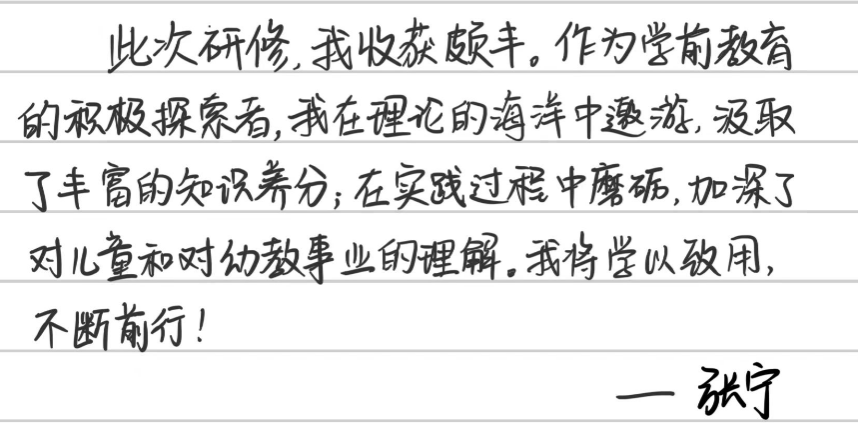 此次研修,我收获颇丰。作为学前教育
的积极探索者,我在理论的海洋中遨游,汲取
了丰富的知识养分;在实践过程中磨砺,加深了
对儿童和对幼教事业的理解。我将学以致用,
不断前行!
— 张宁